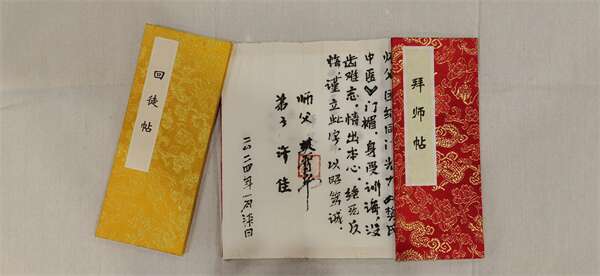 拜师帖
中医
门楣,身受训诲,没
齿难忘,情出本心,绝无反
悔,谨立此字,以昭笃诚。
师父
弟子 许佳
二〇二四年一月柒日
回徒帖